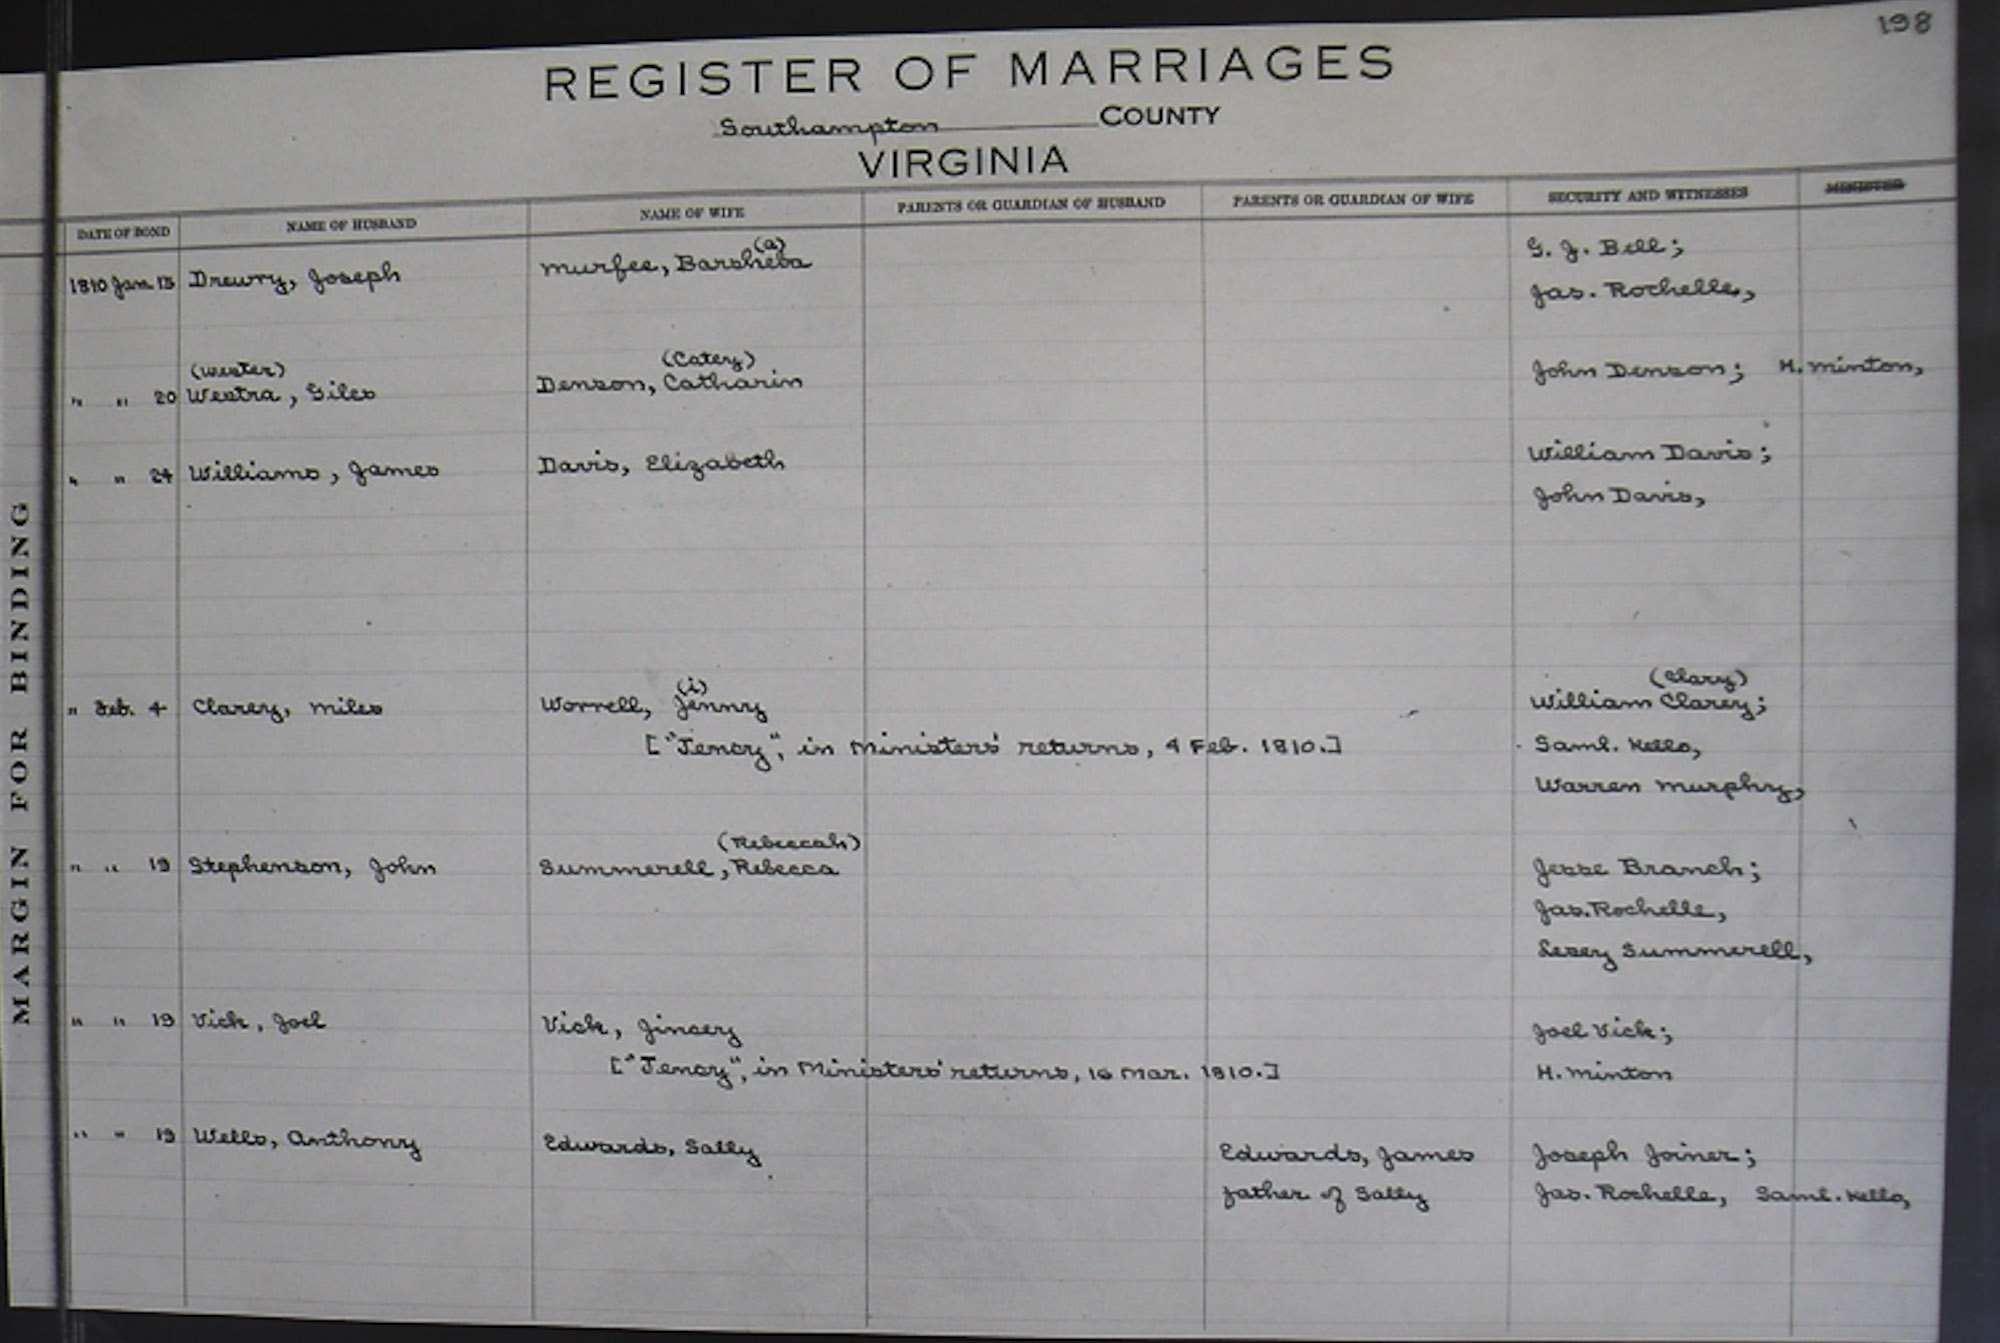 198
REGISTER OF MARRIAGES
Southampton COUNTY
VIRGINIA
DATE OF BOND NAME OF HUSBAND NAME OF WIFE PARENTS OR GUARDIAN OF HUSBAND PARENTS OR GUARDIAN OF WIFE SECURITY AND WITNESSES MINISTER
(a) G. J. Bell;
1810 Jan. 13 Drewry, Joseph Murfee, Barsheba
Jas. Rochelle,
(Wester) (Catey)
" " 20 Westra, Giles Denson, Catharin John Denson; H. Minton,
" " 24 Williams, James Davis, Elizabeth William Davis;
John Davis,
(i) (Clary)
" Feb. 4 Clarey, Miles Worrell, Jenny William Clarey;
["Jency", in Ministers' returns, 4 Feb. 1810.] Saml. Kello,
Warren Murphry,
(Rebeccah)
" " 19 Stephenson, John Summerell, Rebecca Jesse Branch;
Jas. Rochelle,
Summerell,
" " 19 Vick, Joel Vick, Jincey Joel Vick;
["Jency", in Ministers' returns, 16 Mar. 1810.] H. Minton
" " 19 Wells, Anthony Edwards, Sally Edwards, James Joseph Joiner;
father of Sally Jas. Rochelle, Saml. Kello,
MARGIN FOR BINDING